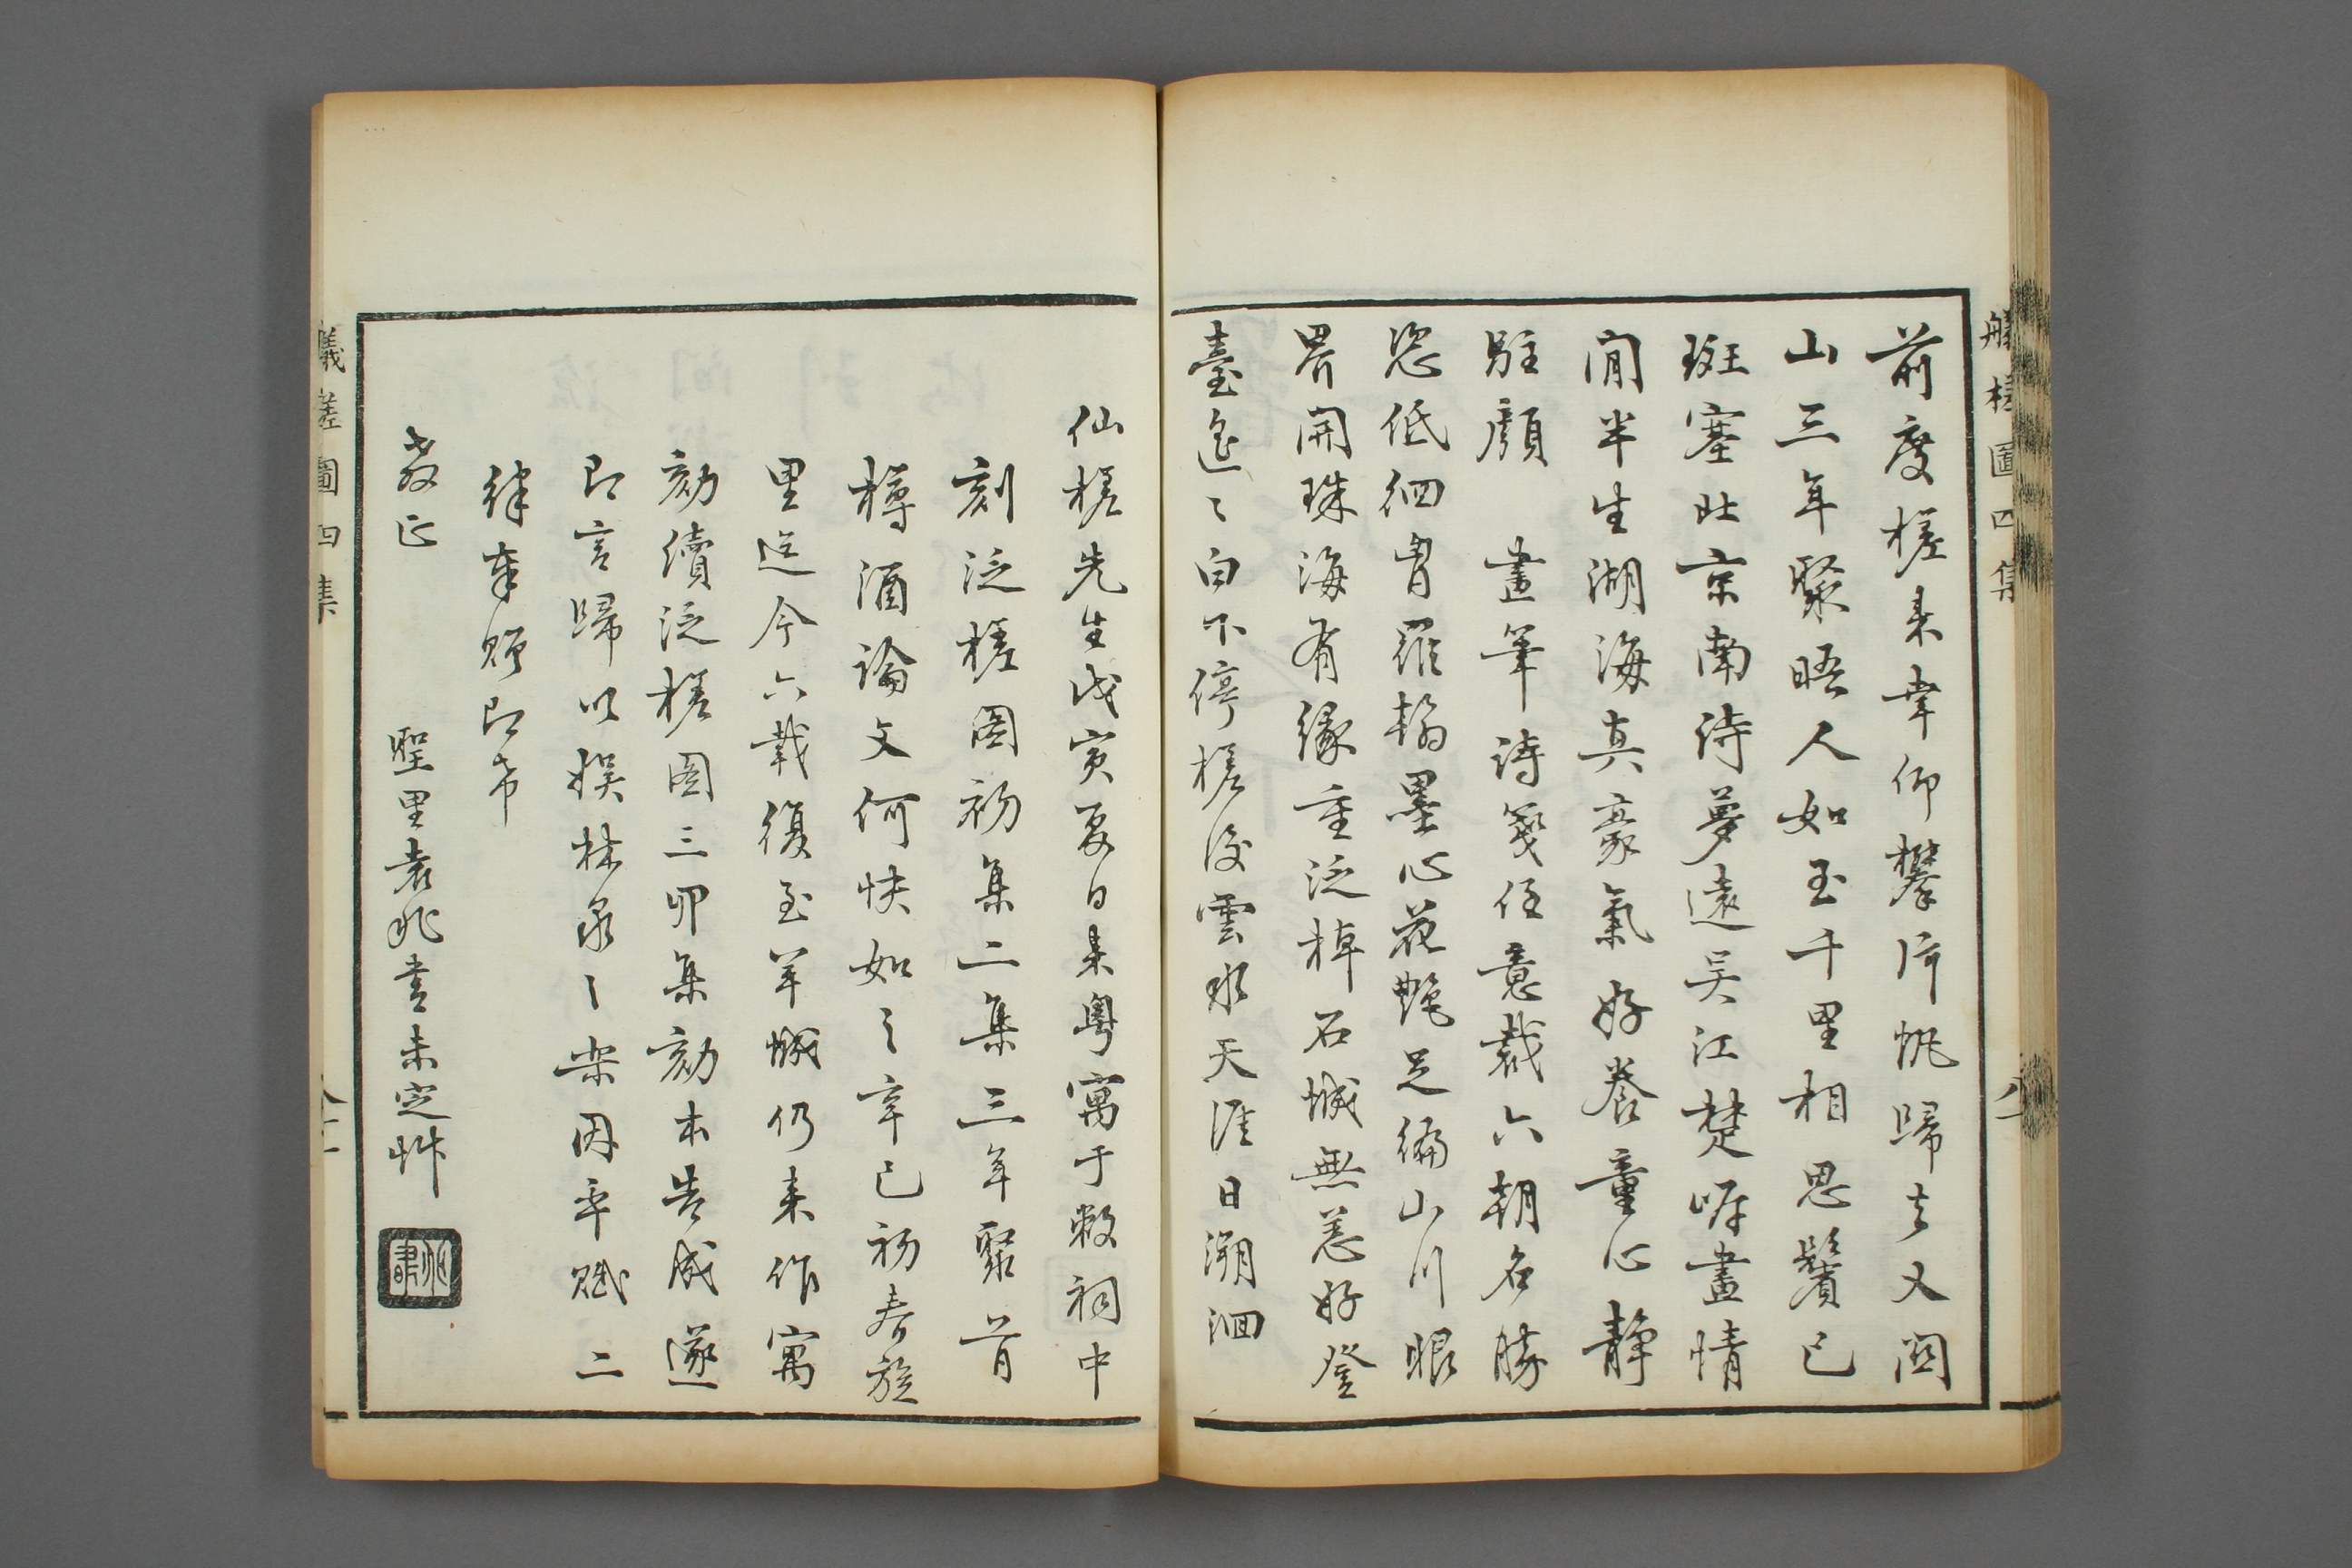 艤槎圖四集
前度槎來幸仰攀片帆歸去又闗
山三年聚晤人如玉千里相思鬢已
斑塞北京南詩夢遠吳江楚岸畫情
閒半生湖海真豪氣好養童心靜
駐顏　畫筆詩箋任意裁六朝名勝
恣低徊胷羅翰墨心花艷足徧山川眼
界開珠海有緣重泛棹石城無恙好登
臺遙〻白下停槎後雲水天涯日溯洄
仙槎先生戊寅夏日來粵寓于敝祠中
刻泛槎圖初集二集三年聚首
樽酒論文何快如之辛巳初春旋
里迄今六載復至羊城仍來作寓
刻續泛槎圖三四集刻本告成遂
即言歸以娛林泉之樂因平賦二
律奉贈即希
教正
聖里袁兆書未定艸
艤槎圖四集